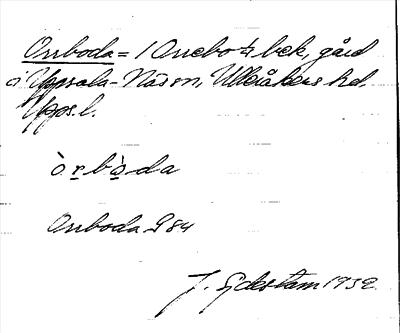 Onboda = 1 Onebo ¼ bek, gård
i Uppsala-Näs sn, Ulleråkers hd.
Upps. l.
ò r b ò da
Onboda 984
J. 1939